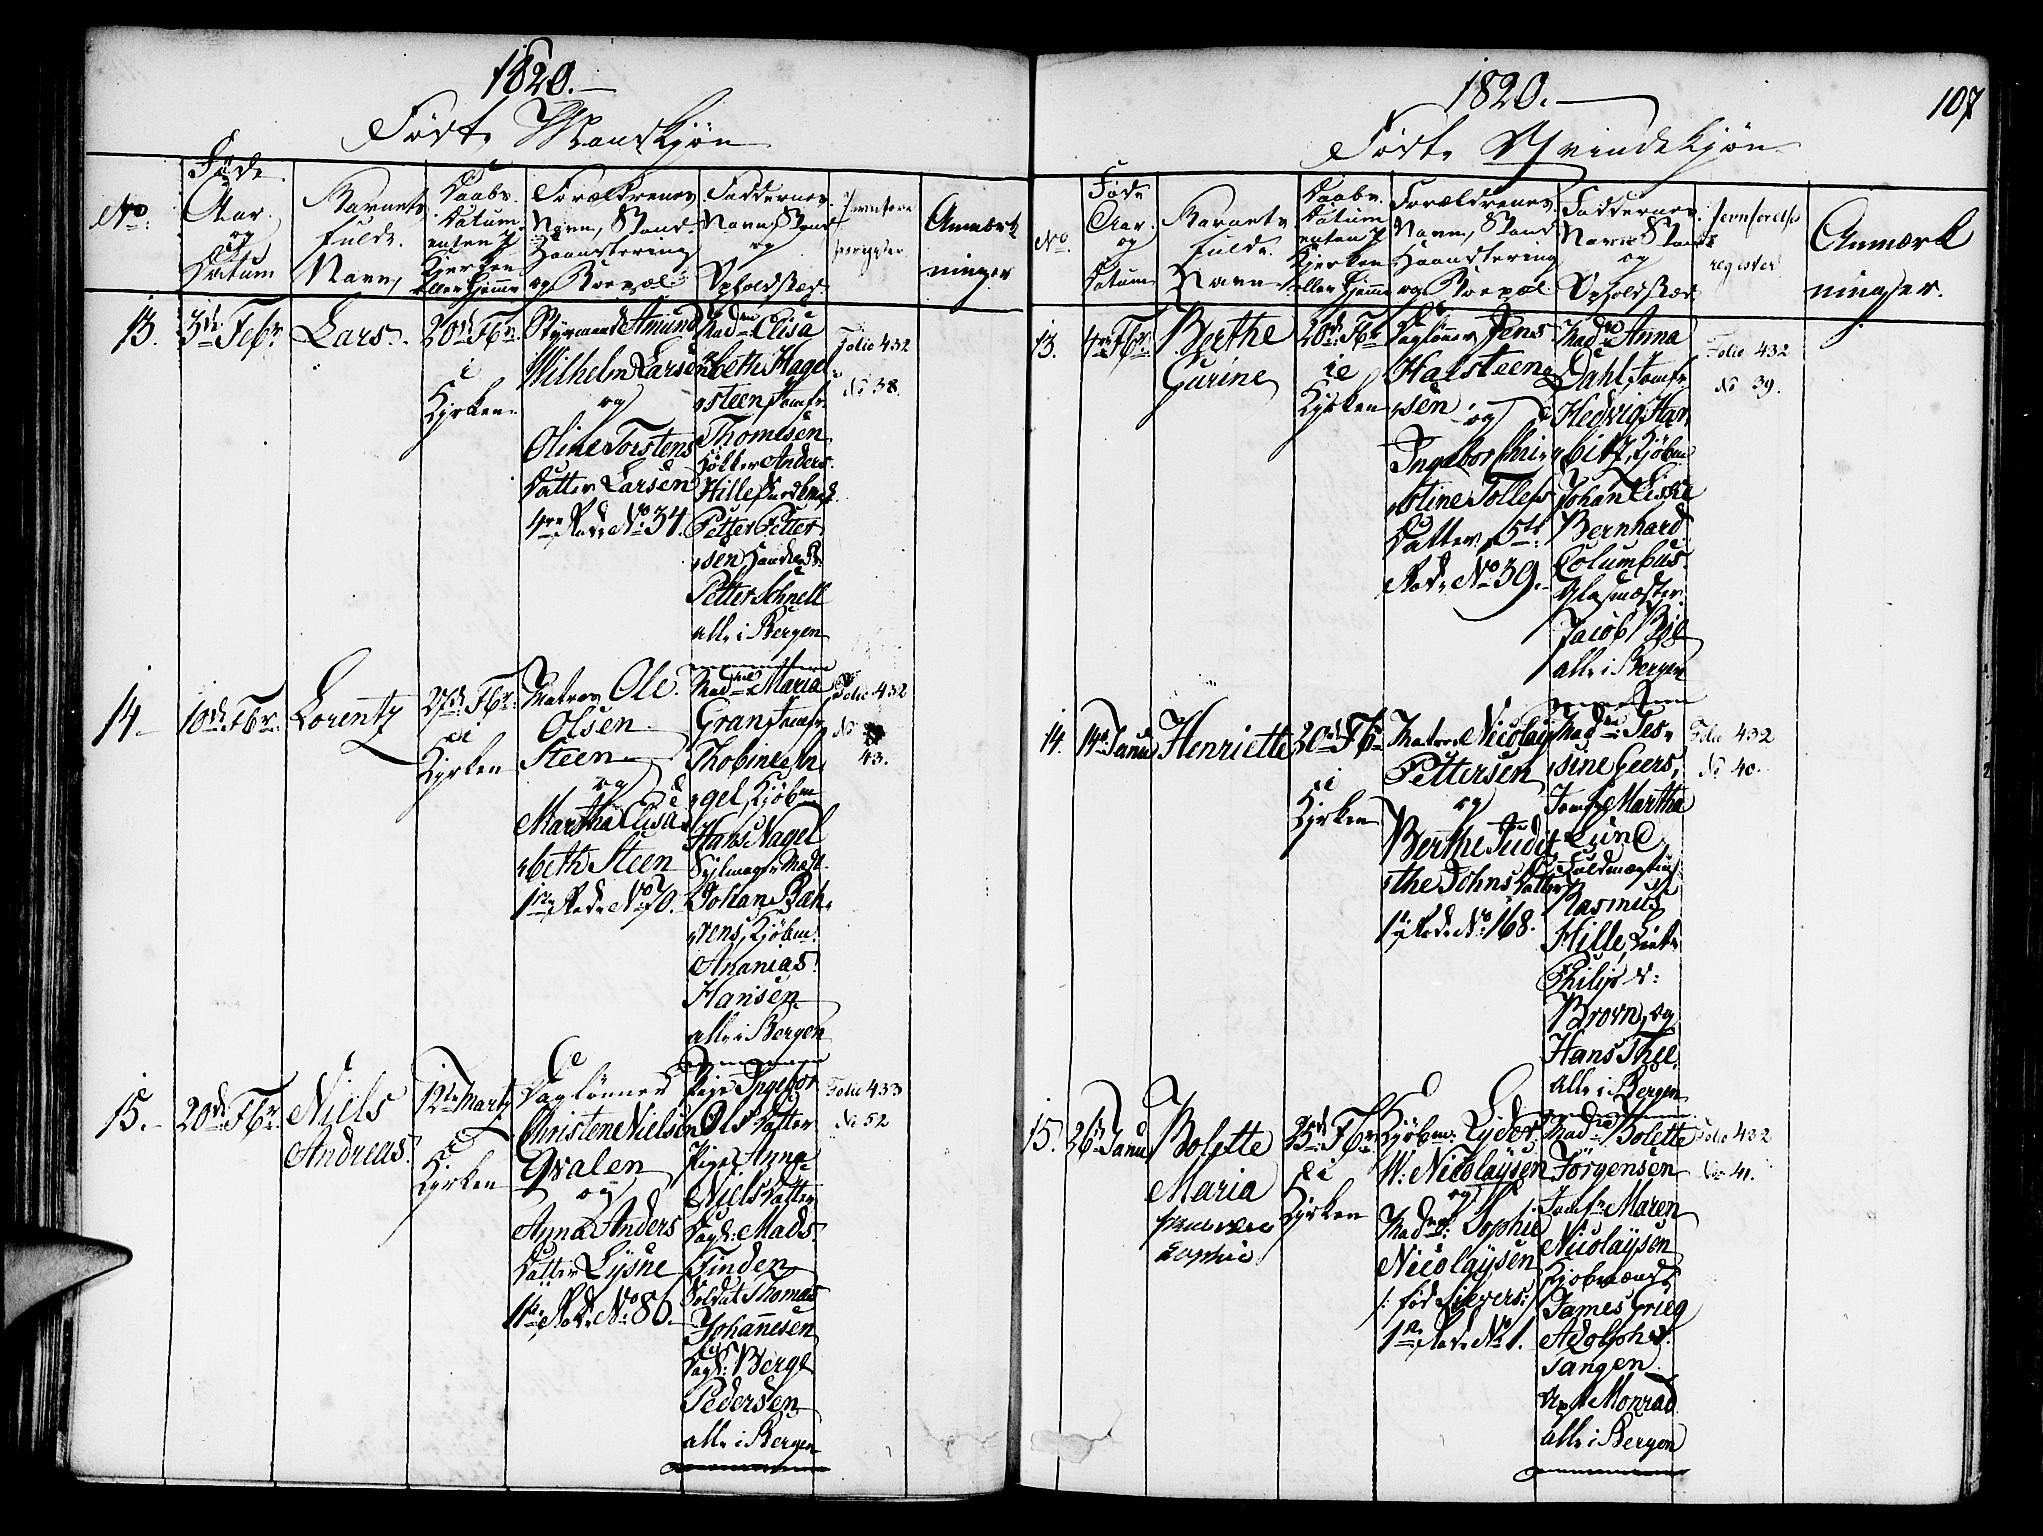 1820.
Födte Mandkjön
No.
Föde
Aar.
og
Datum
Barnets
fulde.
Navn,
Daabs.
Datum.
enten i
Kirken
eller hjemme
Forældrenes
Navn, Stand
Haandtering
og Boepæl
Faddernes
Navn, Stand
og
Opholdsted
register
Anmærk
ninger
13.
3de Febr.
Lars.
20de Fbr.
i
Kirken.
Styrmand Amund
Wilhelm Larsen
og
Oline Torstens
Datter Larsen
4re Rode No 34.
Madme Elisa
beth Hagel
steen Jomfr.
Thomesen
Anders
Hille
Petter Petter
sen
Petter Schnell
alle i Bergen
Folio 432
No 38.
14.
10de Fbr.
Lorentz
27de Fbr.
i
Kirken
Matros Ole.
Olsen
Steen
og
Martha Elisa
beth Steen
1re Rode No 70.
Madme Maria
Gran Jomfr
Thobine An
gel, Kjöbm
Hans Nagel
Johan Bah
rens, Kjöbm.
Ananias.
Hansen
alle i Bergen
Folio 432
No
43.
15.
20de Fbr.
Niels
Andreas.
12te Martz
i
Kirken
Daglönner
Christen Nielsen
Qvalen
og
Anna Anders
Datter Lysne
1te Rode No 86.
Pige Ingebor
Ols Datter
Pige Anna
Niels Datter
Dagl: Mads
Finden
Soldat Thomas
Johannesen
Dagl: Berge
Pedersen
alle i Bergen
Folio 433
No 52
1820.
107
Födte Qvindekjön
No.
Föde
Aar.
og
Datum
Barnets
fulde.
Navn
Daabs.
Datum
enten i
Kirken
eller hjemme
Forældrenes
Navn, Stand
Haandtering
og Boepæl
Faddernes
Navn Stand
og
Opholdsted
Jevnförelses
register
Anmærk
ninger.
13.
4re Fbr.
Berthe
Gurine
20de Fbr
i
Kirken
Daglönner Jens
Halsteen
sen og
Ingebor Chri
stine Tollefs
Datter 5te
Rode No 39.
Madme Anna
Dahl, Jomfr.
Hedvig Har
bitz, Kjöbm
Johan Eiske
Bernhard
Columbus.
Glasmæster
Jacob Böe
alle i Bergen
Folio 432
No 39.
14.
14de Janu
Henriette
20de Fbr
i
Kirken
Matros Nicolay
Pettersen
og
Berthe Judit
the Johns Datter
1te Rode No 168.
Madme Jes
sine Geers,
Jomfr Martha
Lund
Fuldmægtig
Rasmus
Hille,
Philip v:
Brown, og
Hans Thee
alle i Bergen
Folio 432
No 40.
15.
26de Janu
Bolette
Maria
Sophie
25de Fbr
i
Kirken
Kjöbm: Lyder
W. Nicolaysen
og
Madme Sophie
Nicolaysen
/: fod Sievers :/
1te Rode No 1.
Madme Bolette
Jörgensen
Jomfr Maren
Nicolaysen
Kjöbmænd
James Grieg
Adolph v:
Tangen
Monrad
alle i Bergen
Folio 432
No 41.